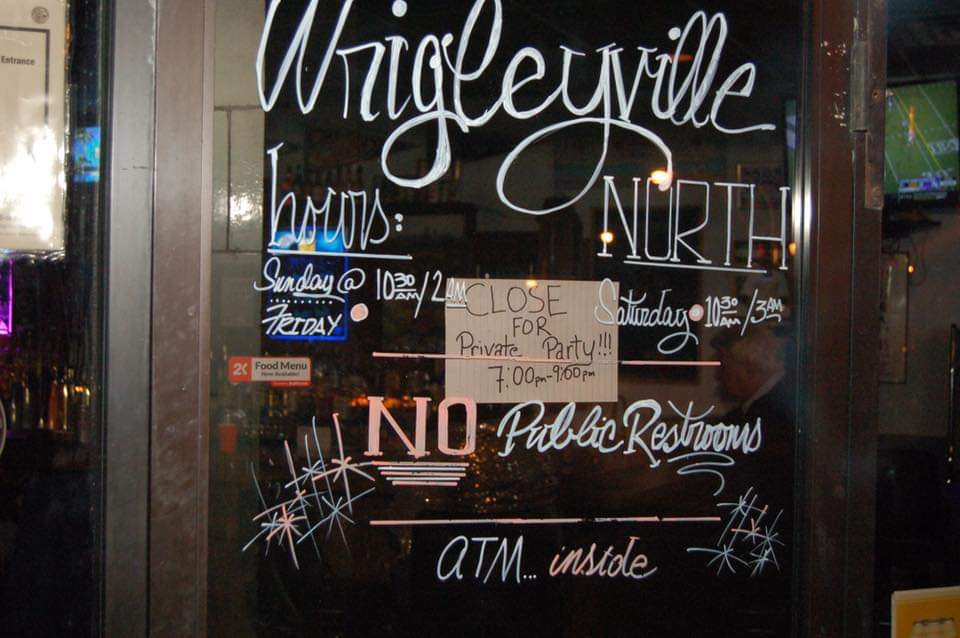 Entrance
Wrigleyville
NORTH
hours:
Sunday @ 10 30 AM / 2 AM
FRIDAY
Saturday 10 30 AM / 3 AM
CLOSE
FOR
Private Party!!!
7:00pm-9:00pm
Food Menu
Now Available!
NO Public Restrooms
ATM... inside